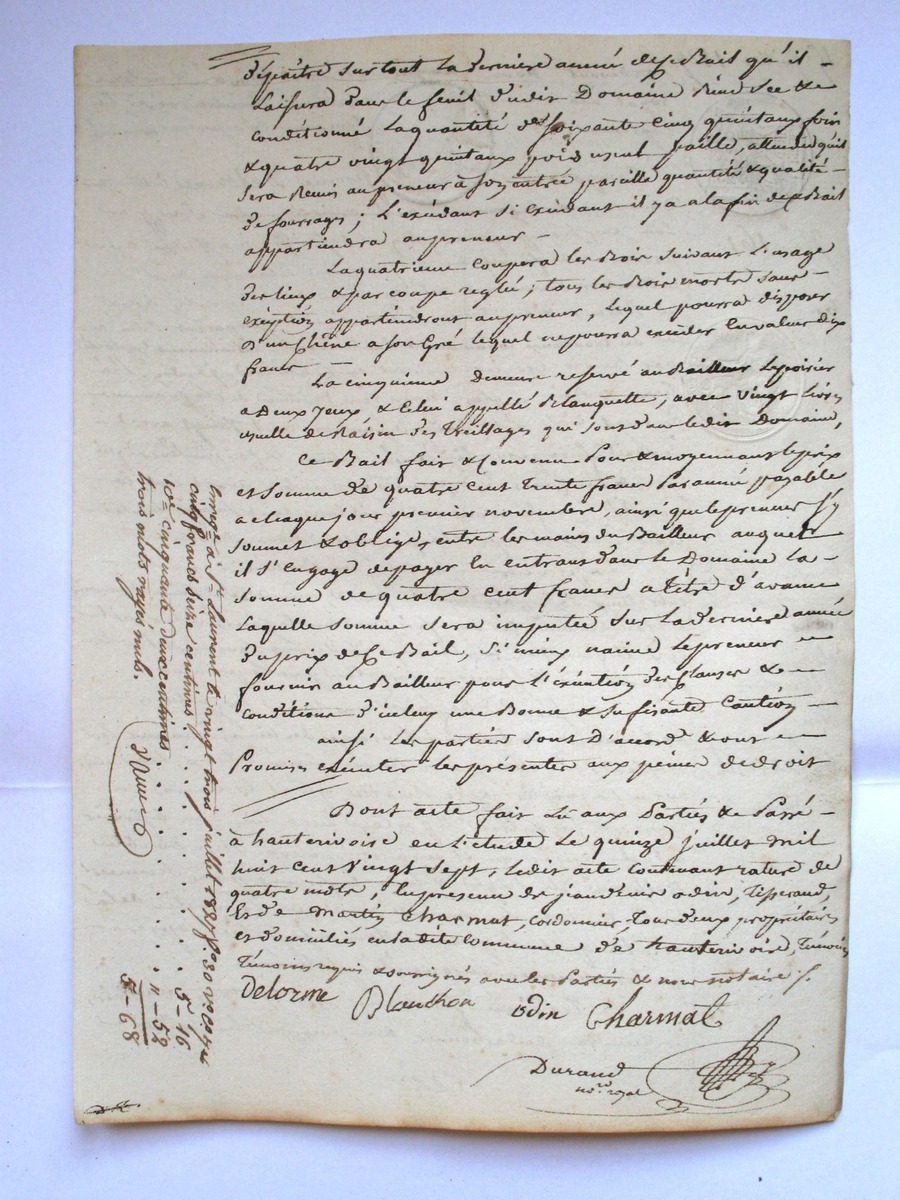 dépaître surtout la derniere année de ce Bail qu'il
Laissera dans le fenil dudit Domaine Rendu sec &
conditionné La quantité de soixante cinq quintaux foin
& quatre vingt quintaux poid usuel paille, attendu qu'il
sera Remis au preneur à son entrée pareille quantité & qualité
de fourrages; L'exédant si exédant il y a a la fin de ce Bail
appartiendra au preneur
La quatrieme coupera les Bois suivant L'usage
des lieux & par coupe reglée; tous les Bois morts sans
exéption appartiendront au preneur, lequel pourra disposer
D'un chêne a son Gré lequel ne pourra exceder la valeur dix
francs
La cinquieme demeure reservé au Bailleur Le poirier
a Deux yeux, & Celui appellé Blanquette, avec vingt livres
usuelle de Raisin des Treillages qui sont dans ledit Domaine,
Ce Bail fait & convenu Pour & moyennant le prix
et somme de quatre cent trente francs Par année payable
a chaque jour premier novembre, ainsi que le preneur s'y
soumet & oblige, entre les mains du Bailleur auquel
il s'engage de payer En entrant dans le Domaine La
somme de quatre cent francs a titre d'avance
Laquelle somme sera imputée sur La derniere année
du prix de ce Bail, si mieux n'aime Le preneur
fournir au Bailleur pour L'éxécution des clauses &
conditions d'icelui une Bonne & suffisante Caution
ainsi Les parties sont D'accord & ont
Promises exécuter les présentes aux peines de droit
Dont acte fait Lu aux Parties & Passé
à hauterivoire en L'etude Le quinze juillet mil
huit cent vingt sept, ledit acte contenant rature de
quatre mots, En presence de jean denis odin, Tisserand,
Et de Martin Charmat, cordonnier, Tous deux propriétaires
et domiciliés en ladite Commune de hauterivoire, Témoins
Témoins requis & soussignés avec les Parties & nous notaire
Delorme Blanchon odin Charmat
Durand
no.re royal
enreg.é à S.t Laurent le vingt trois juillet 1827
cinq francs seize centimes 5-16
10.e cinquante deux centimes " - 52
trois mots rayés nuls. 5-68